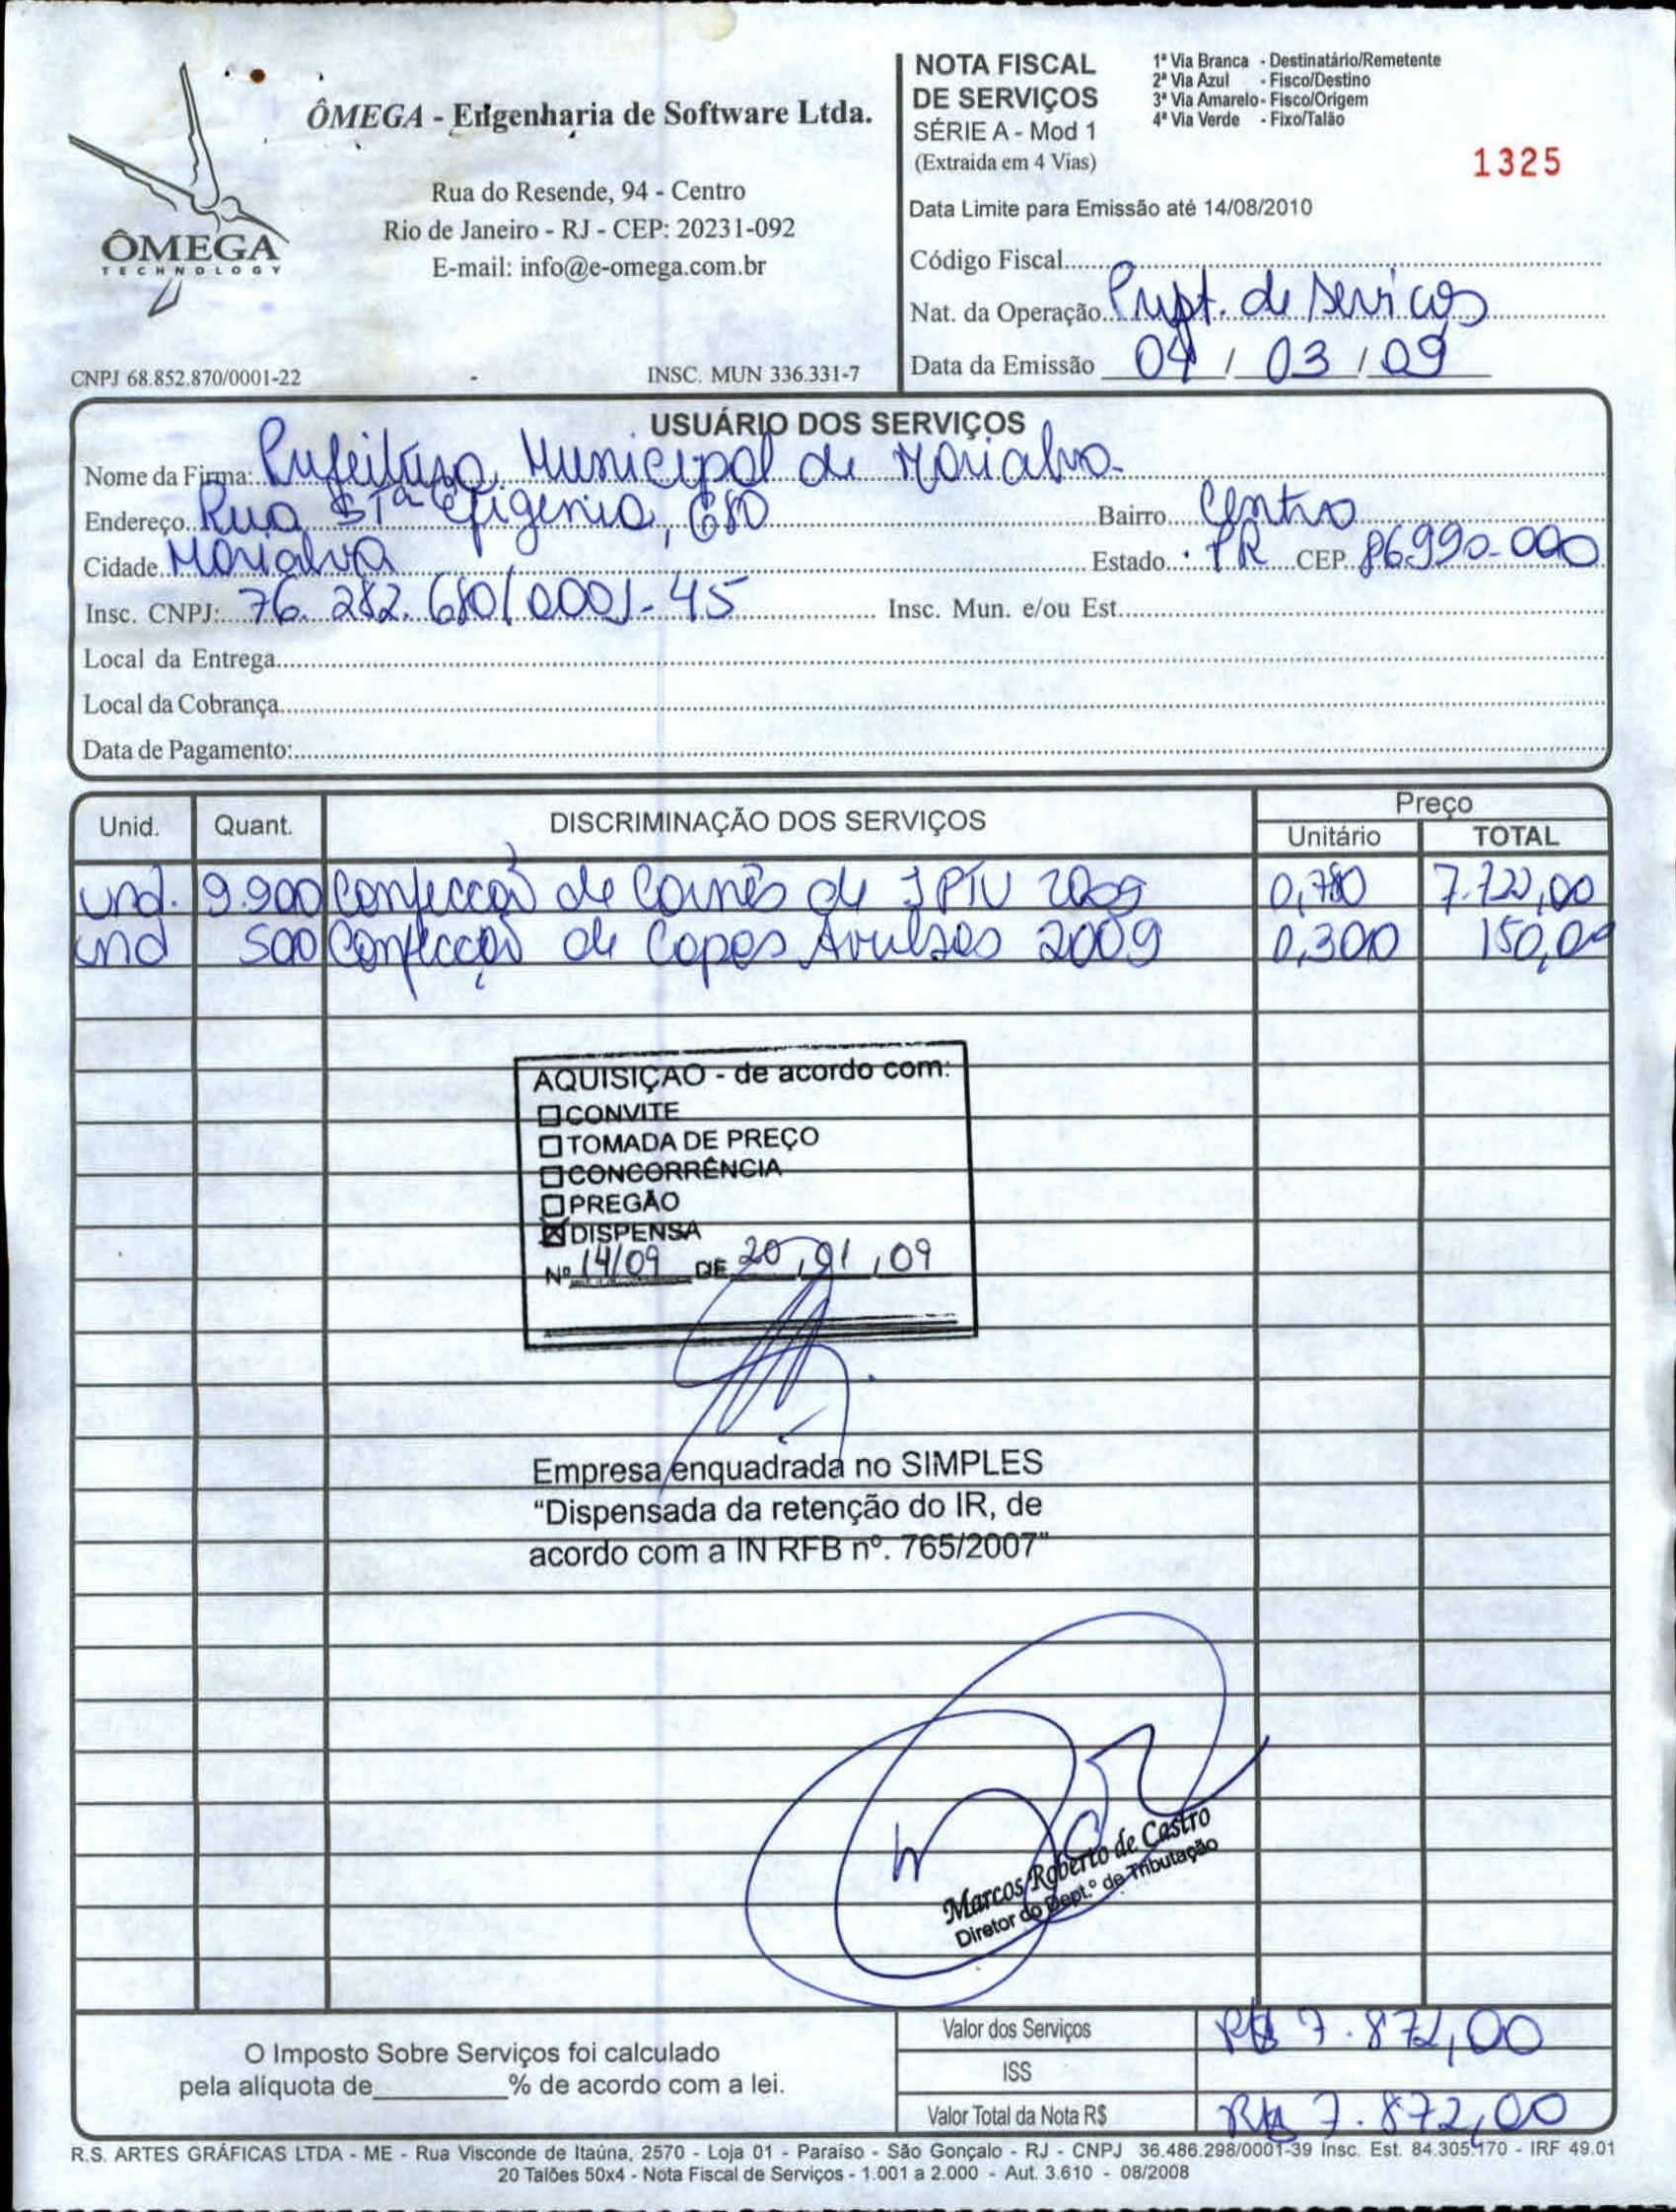 ÔMEGA
TECHNOLOGY
ÔMEGA - Engenharia de Software Ltda.
Rua do Resende, 94 - Centro
Rio de Janeiro - RJ - CEP: 20231-092
E-mail: info@e-omega.com.br
CNPJ 68.852.870/0001-22
INSC. MUN 336.331-7
NOTA FISCAL
DE SERVIÇOS
SÉRIE A - Mod 1
(Extraida em 4 Vias)
1ª Via Branca - Destinatário/Remetente
2ª Via Azul - Fisco/Destino
3ª Via Amarelo - Fisco/Origem
4ª Via Verde - Fixo/Talão
1325
Data Limite para Emissão até 14/08/2010
Código Fiscal
Nat. da Operação de serviços
Data da Emissão 04/03/09
USUÁRIO DOS SERVIÇOS
Nome da Firma: Prefeitura Municipal de Marialva
Endereço Rua Sta Efigenia, 680 Bairro Centro
Cidade Marialva Estado PR CEP 86990-000
Insc. CNPJ: 76.282.680/0001-45 Insc. Mun. e/ou Est.
Local da Entrega
Local da Cobrança
Data de Pagamento:
Unid. Quant. DISCRIMINAÇÃO DOS SERVIÇOS Preço
Unitário TOTAL
und. 9.900 Confecção de Carnês de IPTU 2009 0,780 7.722,00
und 500 Confecção de Capas Avulsas 2009 0,300 150,00
AQUISIÇÃO - de acordo com:
☐ CONVITE
☐ TOMADA DE PREÇO
☐ CONCORRÊNCIA
☐ PREGÃO
☒ DISPENSA
Nº 14/09 DE 20/01/09
Empresa enquadrada no SIMPLES
"Dispensada da retenção do IR, de
acordo com a IN RFB nº. 765/2007"
Marcos Roberto de Castro
Diretor do Dept.º de Tributação
O Imposto Sobre Serviços foi calculado
pela aliquota de ________% de acordo com a lei.
Valor dos Serviços R$ 7.872,00
ISS
Valor Total da Nota R$ R$ 7.872,00
R.S. ARTES GRÁFICAS LTDA - ME - Rua Visconde de Itaúna, 2570 - Loja 01 - Paraíso - São Gonçalo - RJ - CNPJ 36.486.298/0001-39 Insc. Est. 84.305.170 - IRF 49.01
20 Talões 50x4 - Nota Fiscal de Serviços - 1.001 a 2.000 - Aut. 3.610 - 08/2008